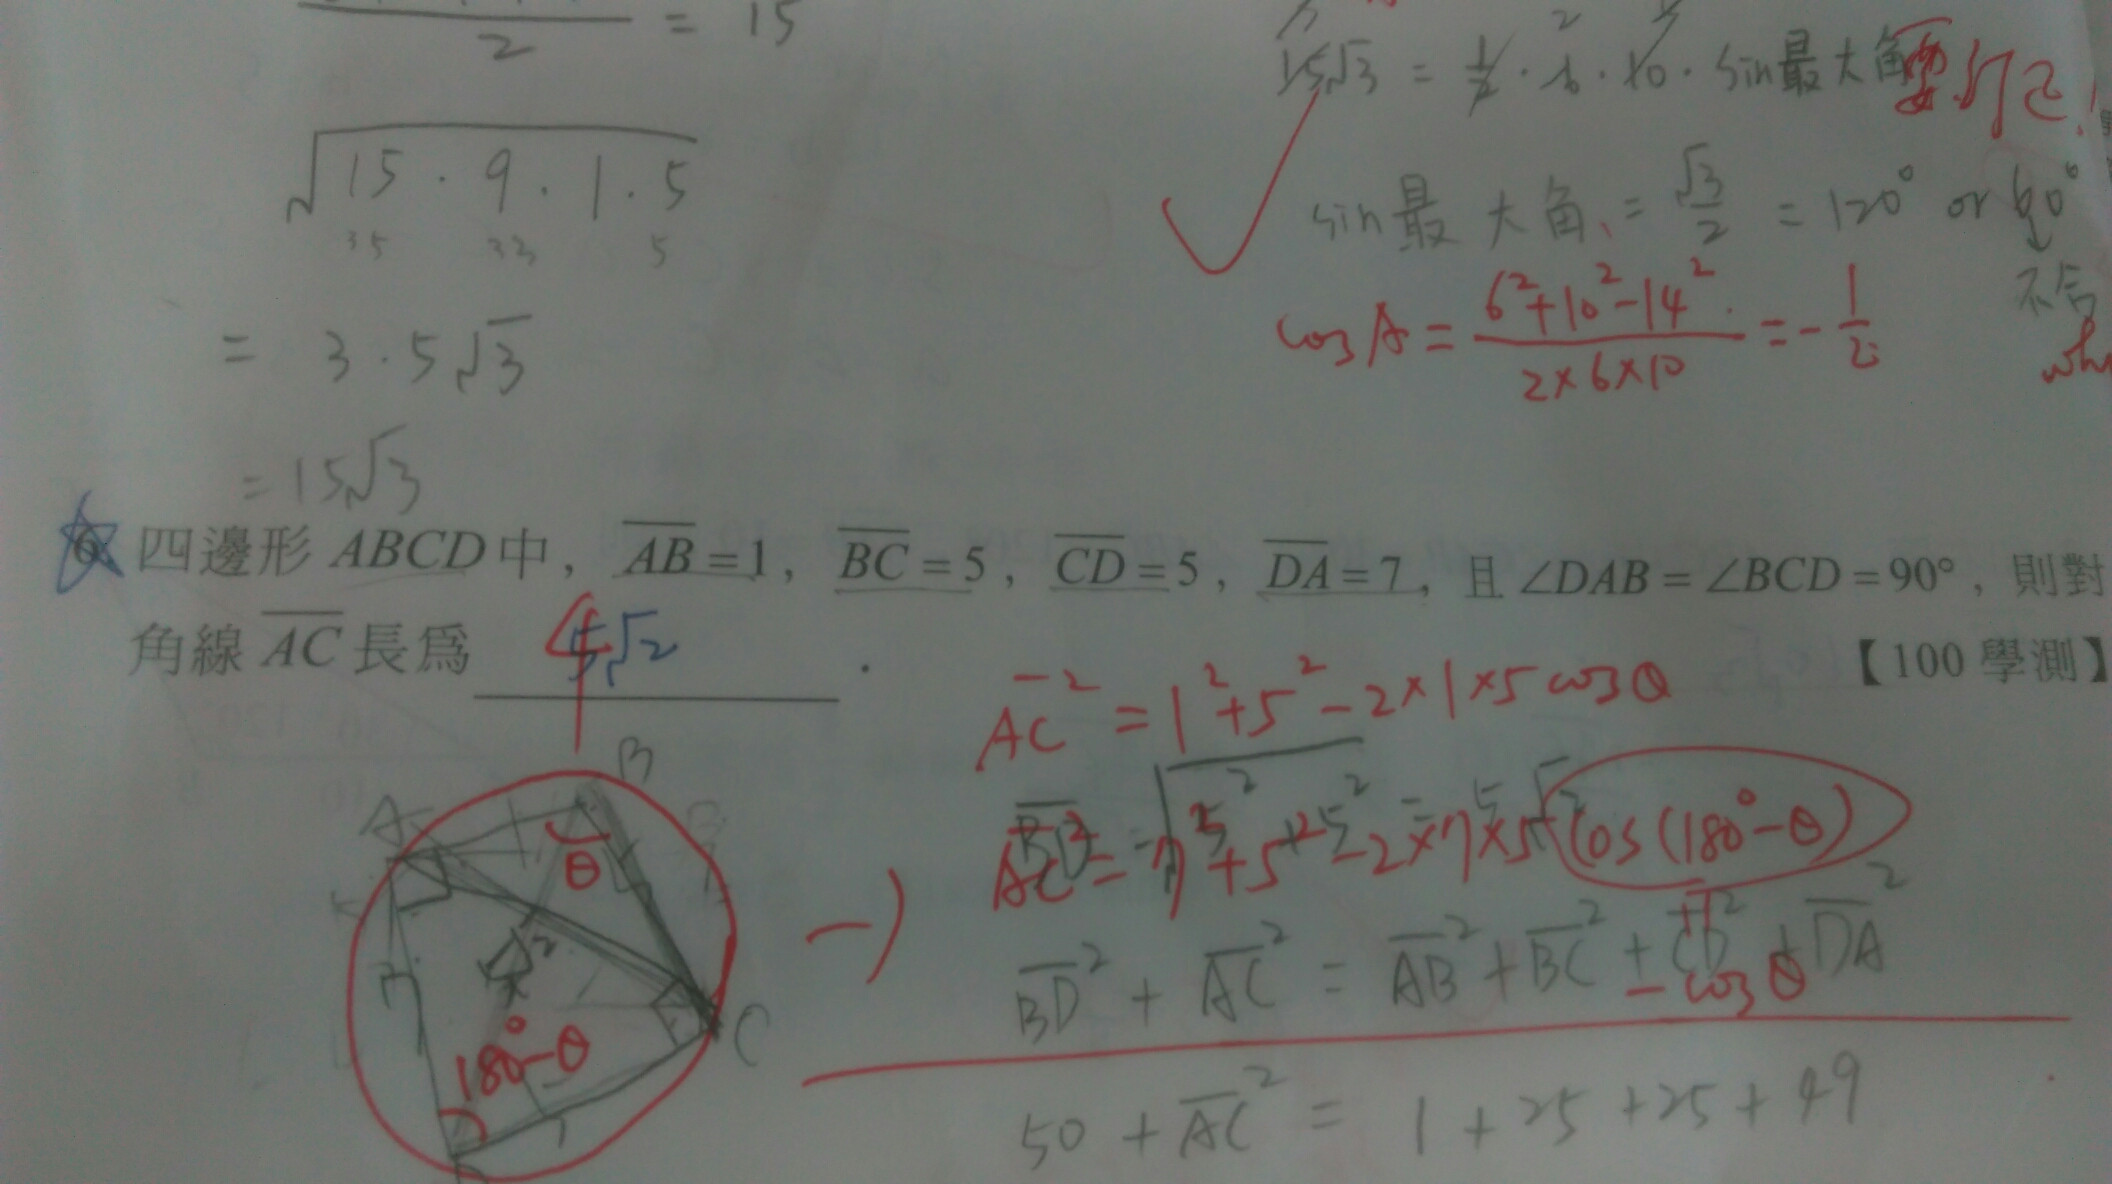 2 = 15
√15 · 9 · 1 · 5
35 33 5
= 3 · 5√3
= 15√3
15√3 = 1/2 · 6 · 10 · sin最大角
sin最大角 = √3/2 = 120° or 60°
不合
cosA = (6²+10²-14²)/(2×6×10) = -1/2
6. 四邊形 ABCD 中，AB=1，BC=5，CD=5，DA=7，且 ∠DAB=∠BCD=90°，則對
角線 AC 長為 4√2 .
【100 學測】
AC² = 1²+5²-2×1×5cosθ
-) AC² = 7²+5²-2×7×5 cos(180°-θ)
-cosθ
BD = √5²+5² = 5√2
BD² + AC² = AB² + BC² + CD² + DA²
50 + AC² = 1 + 25 + 25 + 49
A
B
θ
C
180°-θ